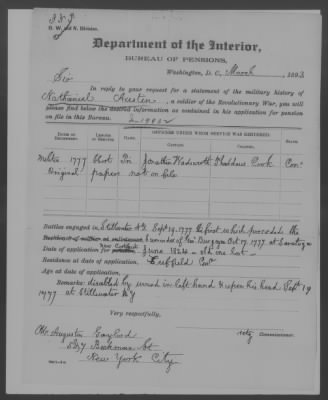 O. W. and N. Division.
Department of the Interior,
BUREAU OF PENSIONS,
Washington, D. C., March , 1893
Sir
In reply to your request for a statement of the military history of
Nathaniel Austin, a soldier of the Revolutionary War, you will
please find below the desired information as contained in his application for pension
on file in this Bureau.
DATES OF ENLISTMENT.
LENGTH OF SERVICE.
RANK.
OFFICERS UNDER WHOM SERVICE WAS RENDERED.
CAPTAIN.
COLONEL.
STATE.
Militia 1777 Short Pri Jonathan Wadsworth Thaddeus Cook Con.
Original papers not on file
Battles engaged in, Stillwater N.Y. Sept. 19, 1777 the first which preceded the
surrender of Gen Burgoyne Oct 17, 1777 at Saratoga
Date of application for June 1824
Residence at date of application, Suffield Con.
Age at date of application,
Remarks: disabled by wound in left hand & upon his head Sept 19
1777 at Stillwater N.Y
Very respectfully,
Commissioner.
Mr Augustus Gaylord
Beekman St
New York City